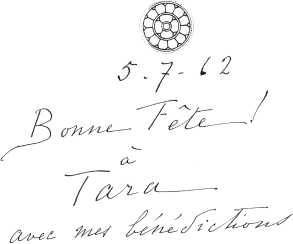 5.7-62
Bonne Fête!
à
Tara
avec mes bénédictions